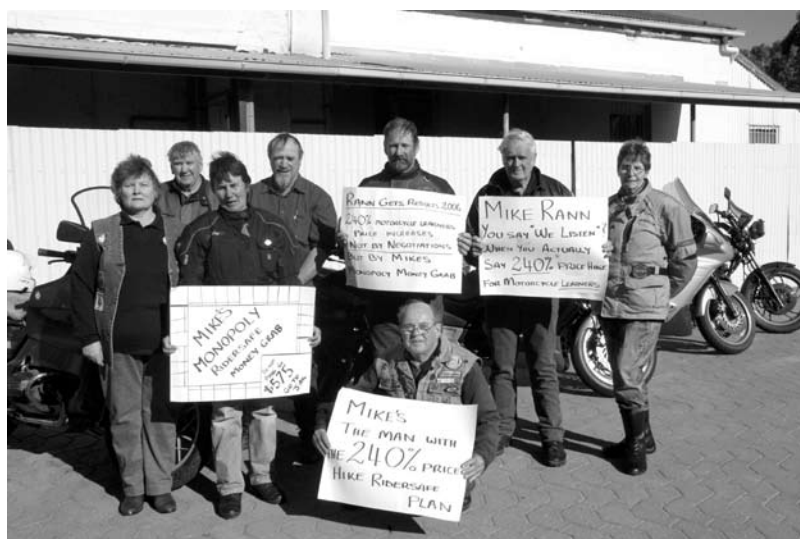 RANN GETS RESULTS 2006
240% MOTORCYCLE LEARNERS
PRICE INCREASES
NOT BY NEGOTIATIONS
BUT BY MIKES
MONOPOLY MONEY GRAB
MIKE RANN
YOU SAY "WE LISTEN"?
WHEN YOU ACTUALLY
SAY 240% PRICE HIKE
FOR MOTORCYCLE LEARNERS
MIKE'S
MONOPOLY
RIDERSAFE
MONEY GRAB
$575
MIKE'S
THE MAN WITH
THE 240% PRICE
HIKE RIDERSAFE
PLAN